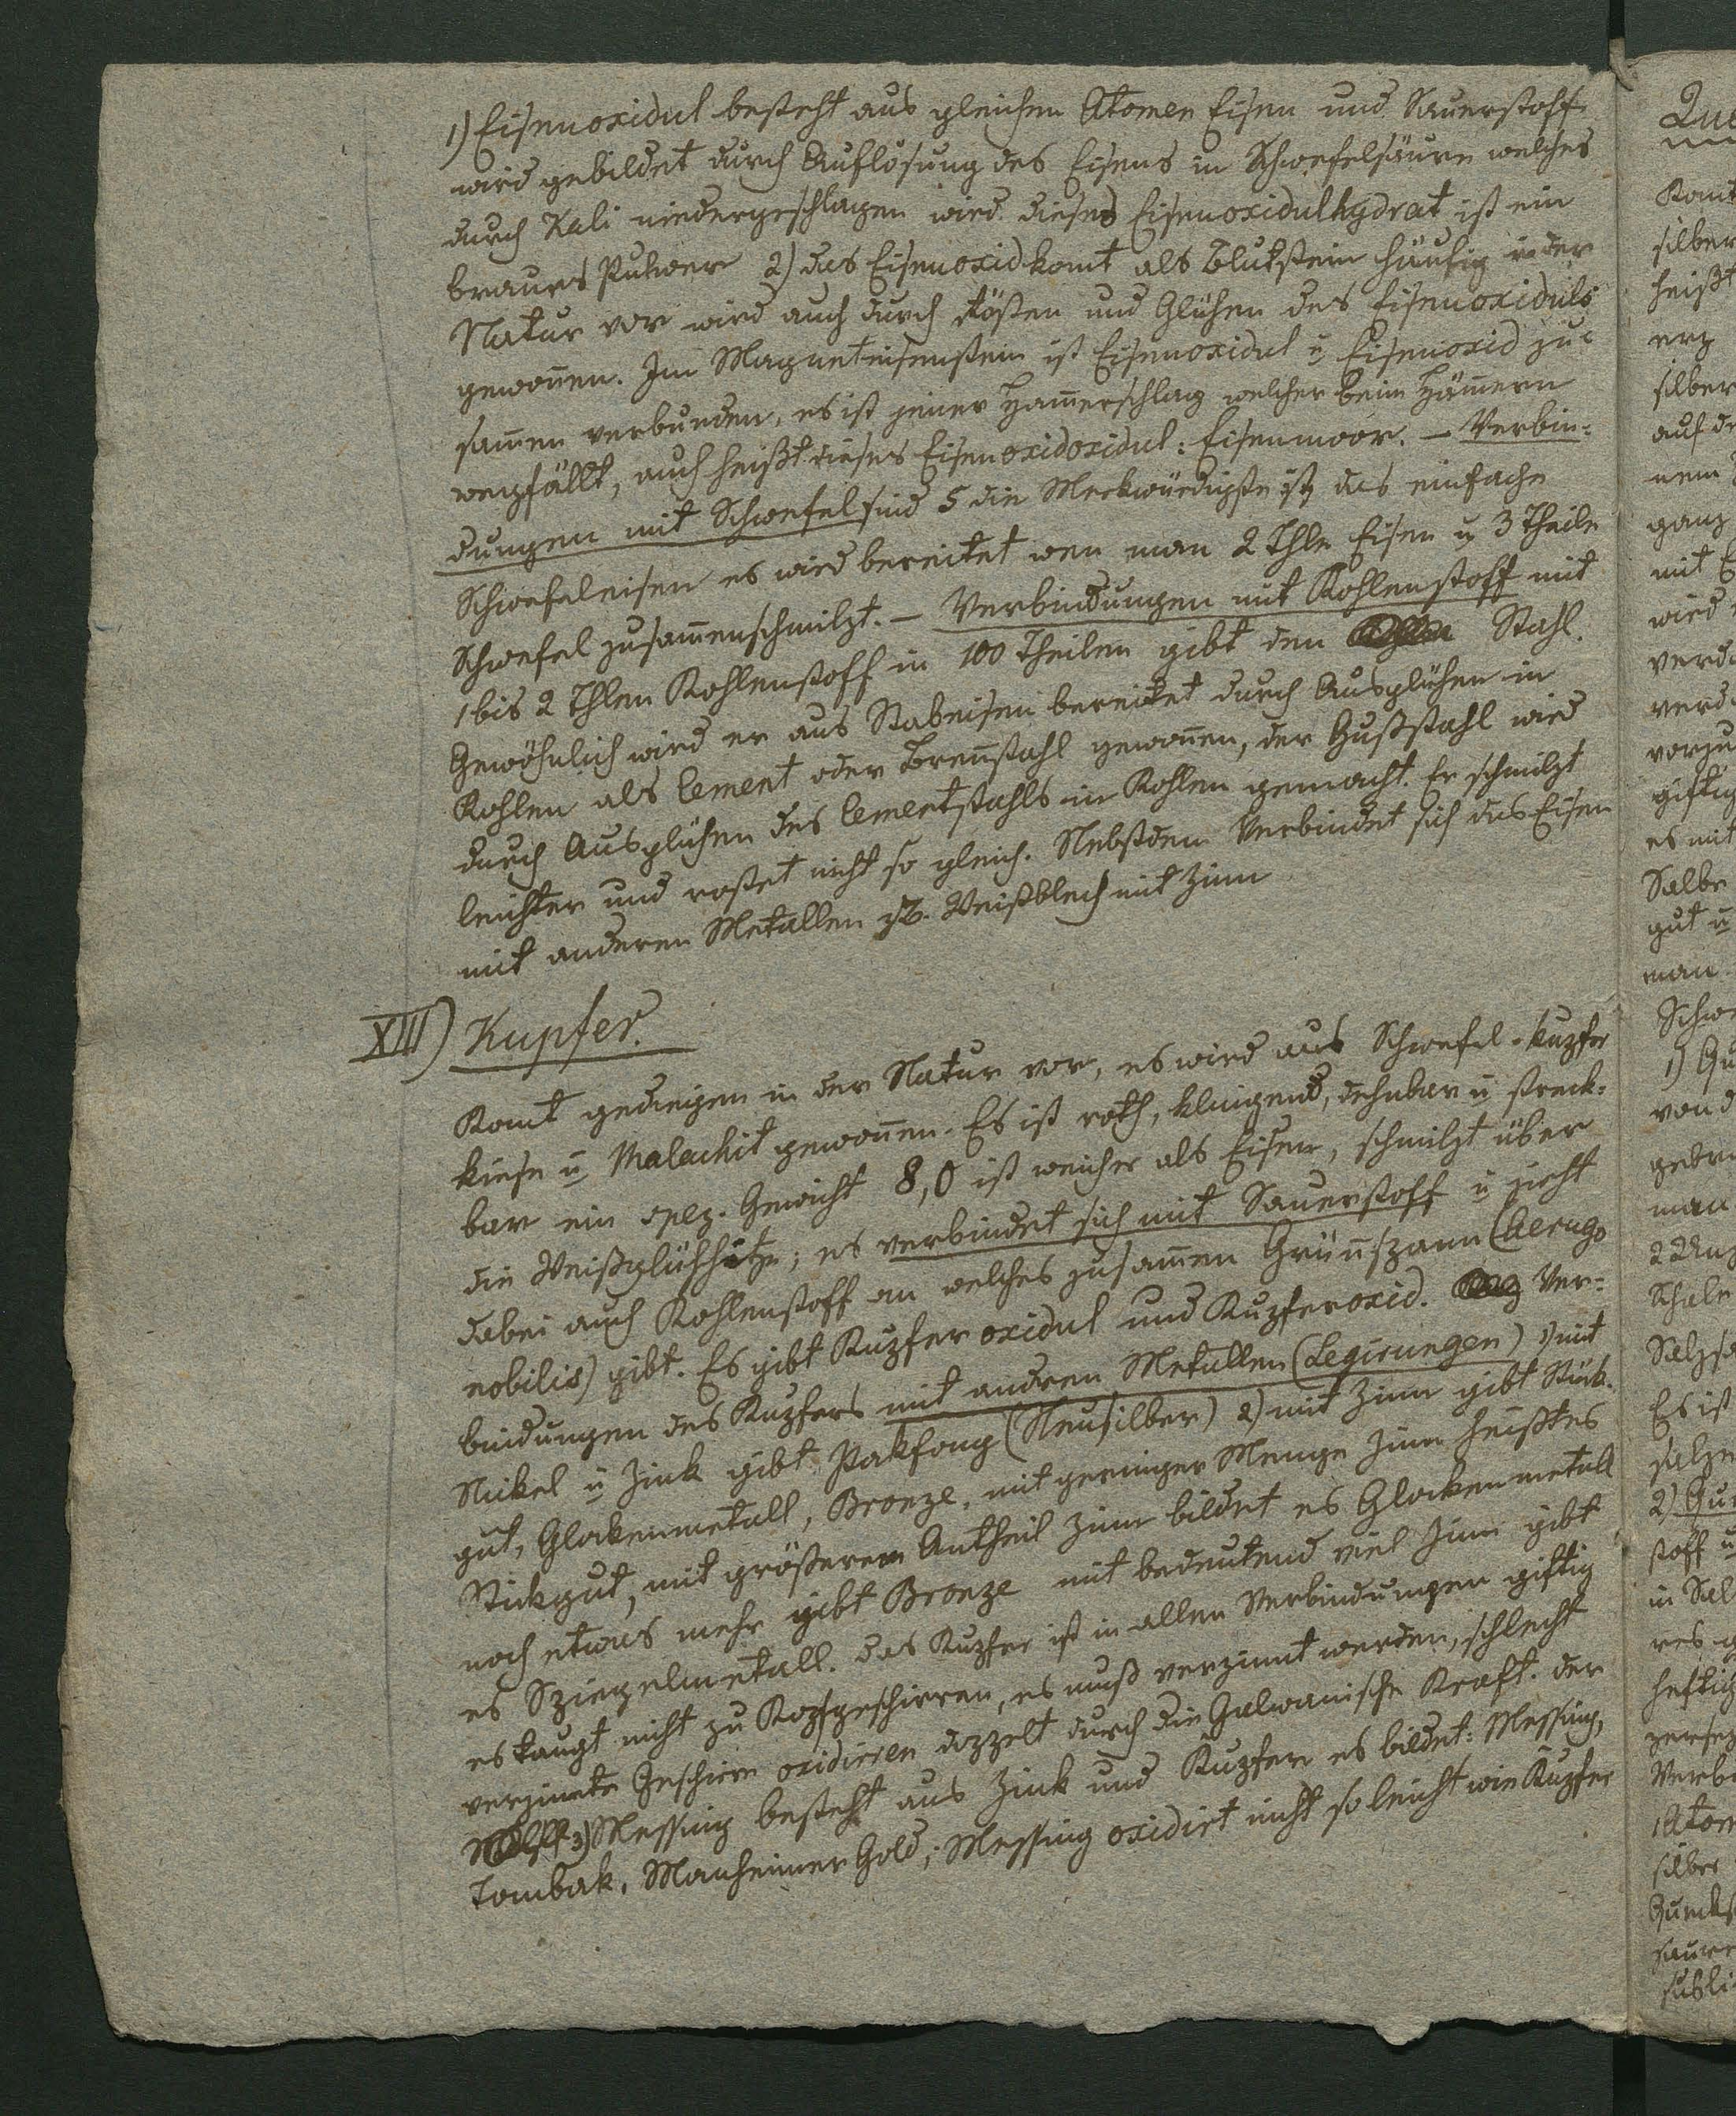 1) Eisenoxidul besteht aus gleichen Atomen Eisen und Sauerstoff
wird gebildet durch Auflösung des Eisens in Schwefelsäure welches
durch Kali niedergeschlagen wird dieses Eisenoxidulhydrat ist ein
braunes Pulver 2) das Eisenoxid komt als Blutstein häufig in der
Natur vor wird auch durch Rößen und Glühen des Eisenoxiduls
gewonnen. Im Magneteisenstein ist Eisenoxidul u Eisenoxid zu=
samen verbunden, es ist jener Hamerschlag welcher beim Hämern
wegfällt, auch heißt dieses Eisenoxidoxidul: Eisenmoor. – Verbin=
dungen mit Schwefel sind 5 die Merkwürdigste ist das einfache
Schwefeleisen es wird bereitet wen man 2 Thle Eisen u 3 Theile
Schwefel zusamenschmilzt. – Verbindungen mit Kohlenstoff mit
1 bis 2 Thlen Kohlenstoff in 100 Theilen gibt den Stahl.
Gewöhnlich wird er aus Stabeisen bereitet durch Ausglühen in
Kohlen als Cement oder Brenstahl gewonen, der Gußstahl wird
durch Ausglühen des Cementstahls in Kohlen gemacht. Er schmilzt
leichter und rostet nicht so gleich. Nebstdem Verbindet sich das Eisen
mit anderen Metallen z.B. Weißblech mit Zinn
XIII) Kupfer.
Komt gediegen in der Natur vor, es wird aus Schwefel-kupfer
kiese u Malachit gewonen. Es ist roth, klingend, dehnbar u streck=
bar ein spez. Gewicht 8,0 ist weicher als Eisen, schmilzt über
die Weißglühhitze; es verbindet sich mit Sauerstoff u zieht
dabei auch Kohlenstoff an welches zusamen Grünspann (Aerugo
nobilis) gibt. Es gibt Kupfer oxidul und Kupferoxid. Ver=
bindungen des Kupfers mit andren Metallen (Legirungen) 1) mit
Nickel u Zink gibt Pakfong (Neusilber) 2) mit Zinn gibt Stück=
gut, Glokenmetall, Bronze, mit geringer Menge Zinn heißt es
Stückgut, mit größerem Antheil Zinn bildet es Glockenmetall
noch etwas mehr gibt Bronze mit bedeutend viel Zinn gibt
es Spiegelmetall. das Kupfer ist in allen Verbindungen giftig
es taugt nicht zu Kopfgeschirren, es muß verzinnt werden, schlecht
verzinnte Geschirre oxidieren doppelt durch die Galvanische Kraft. der
3) Messing besteht aus Zink und Kupfer es bildet: Messing,
Tombak, Manheimer Gold; Messing oxidirt nicht so leicht wie Kupfer